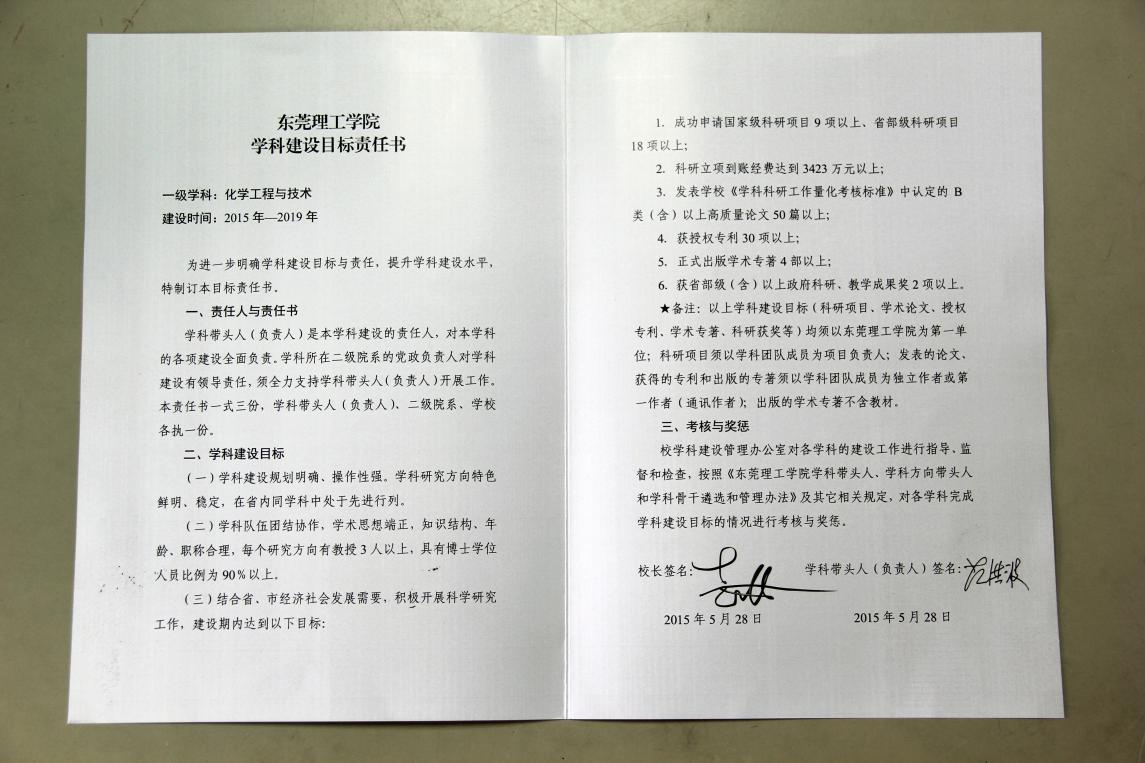 东莞理工学院
学科建设目标责任书
一级学科：化学工程与技术
建设时间：2015 年—2019 年
为进一步明确学科建设目标与责任，提升学科建设水平，
特制订本目标责任书。
一、责任人与责任书
学科带头人（负责人）是本学科建设的责任人，对本学科
的各项建设全面负责。学科所在二级院系的党政负责人对学科
建设有领导责任，须全力支持学科带头人（负责人）开展工作。
本责任书一式三份，学科带头人（负责人）、二级院系、学校
各执一份。
二、学科建设目标
（一）学科建设规划明确、操作性强。学科研究方向特色
鲜明、稳定，在省内同学科中处于先进行列。
（二）学科队伍团结协作，学术思想端正，知识结构、年
龄、职称合理，每个研究方向有教授 3 人以上，具有博士学位
人员比例为 90％以上。
（三）结合省、市经济社会发展需要，积极开展科学研究
工作，建设期内达到以下目标：
1. 成功申请国家级科研项目 9 项以上、省部级科研项目
18 项以上；
2. 科研立项到账经费达到 3423 万元以上；
3. 发表学校《学科科研工作量化考核标准》中认定的 B
类（含）以上高质量论文 50 篇以上；
4. 获授权专利 30 项以上；
5. 正式出版学术专著 4 部以上；
6. 获省部级（含）以上政府科研、教学成果奖 2 项以上。
★备注：以上学科建设目标（科研项目、学术论文、授权
专利、学术专著、科研获奖等）均须以东莞理工学院为第一单
位；科研项目须以学科团队成员为项目负责人；发表的论文、
获得的专利和出版的专著须以学科团队成员为独立作者或第
一作者（通讯作者）；出版的学术专著不含教材。
三、考核与奖惩
校学科建设管理办公室对各学科的建设工作进行指导、监
督和检查，按照《东莞理工学院学科带头人、学科方向带头人
和学科骨干遴选和管理办法》及其它相关规定，对各学科完成
学科建设目标的情况进行考核与奖惩。
校长签名： 学科带头人（负责人）签名：范洪波
2015 年 5 月 28 日 2015 年 5 月 28 日